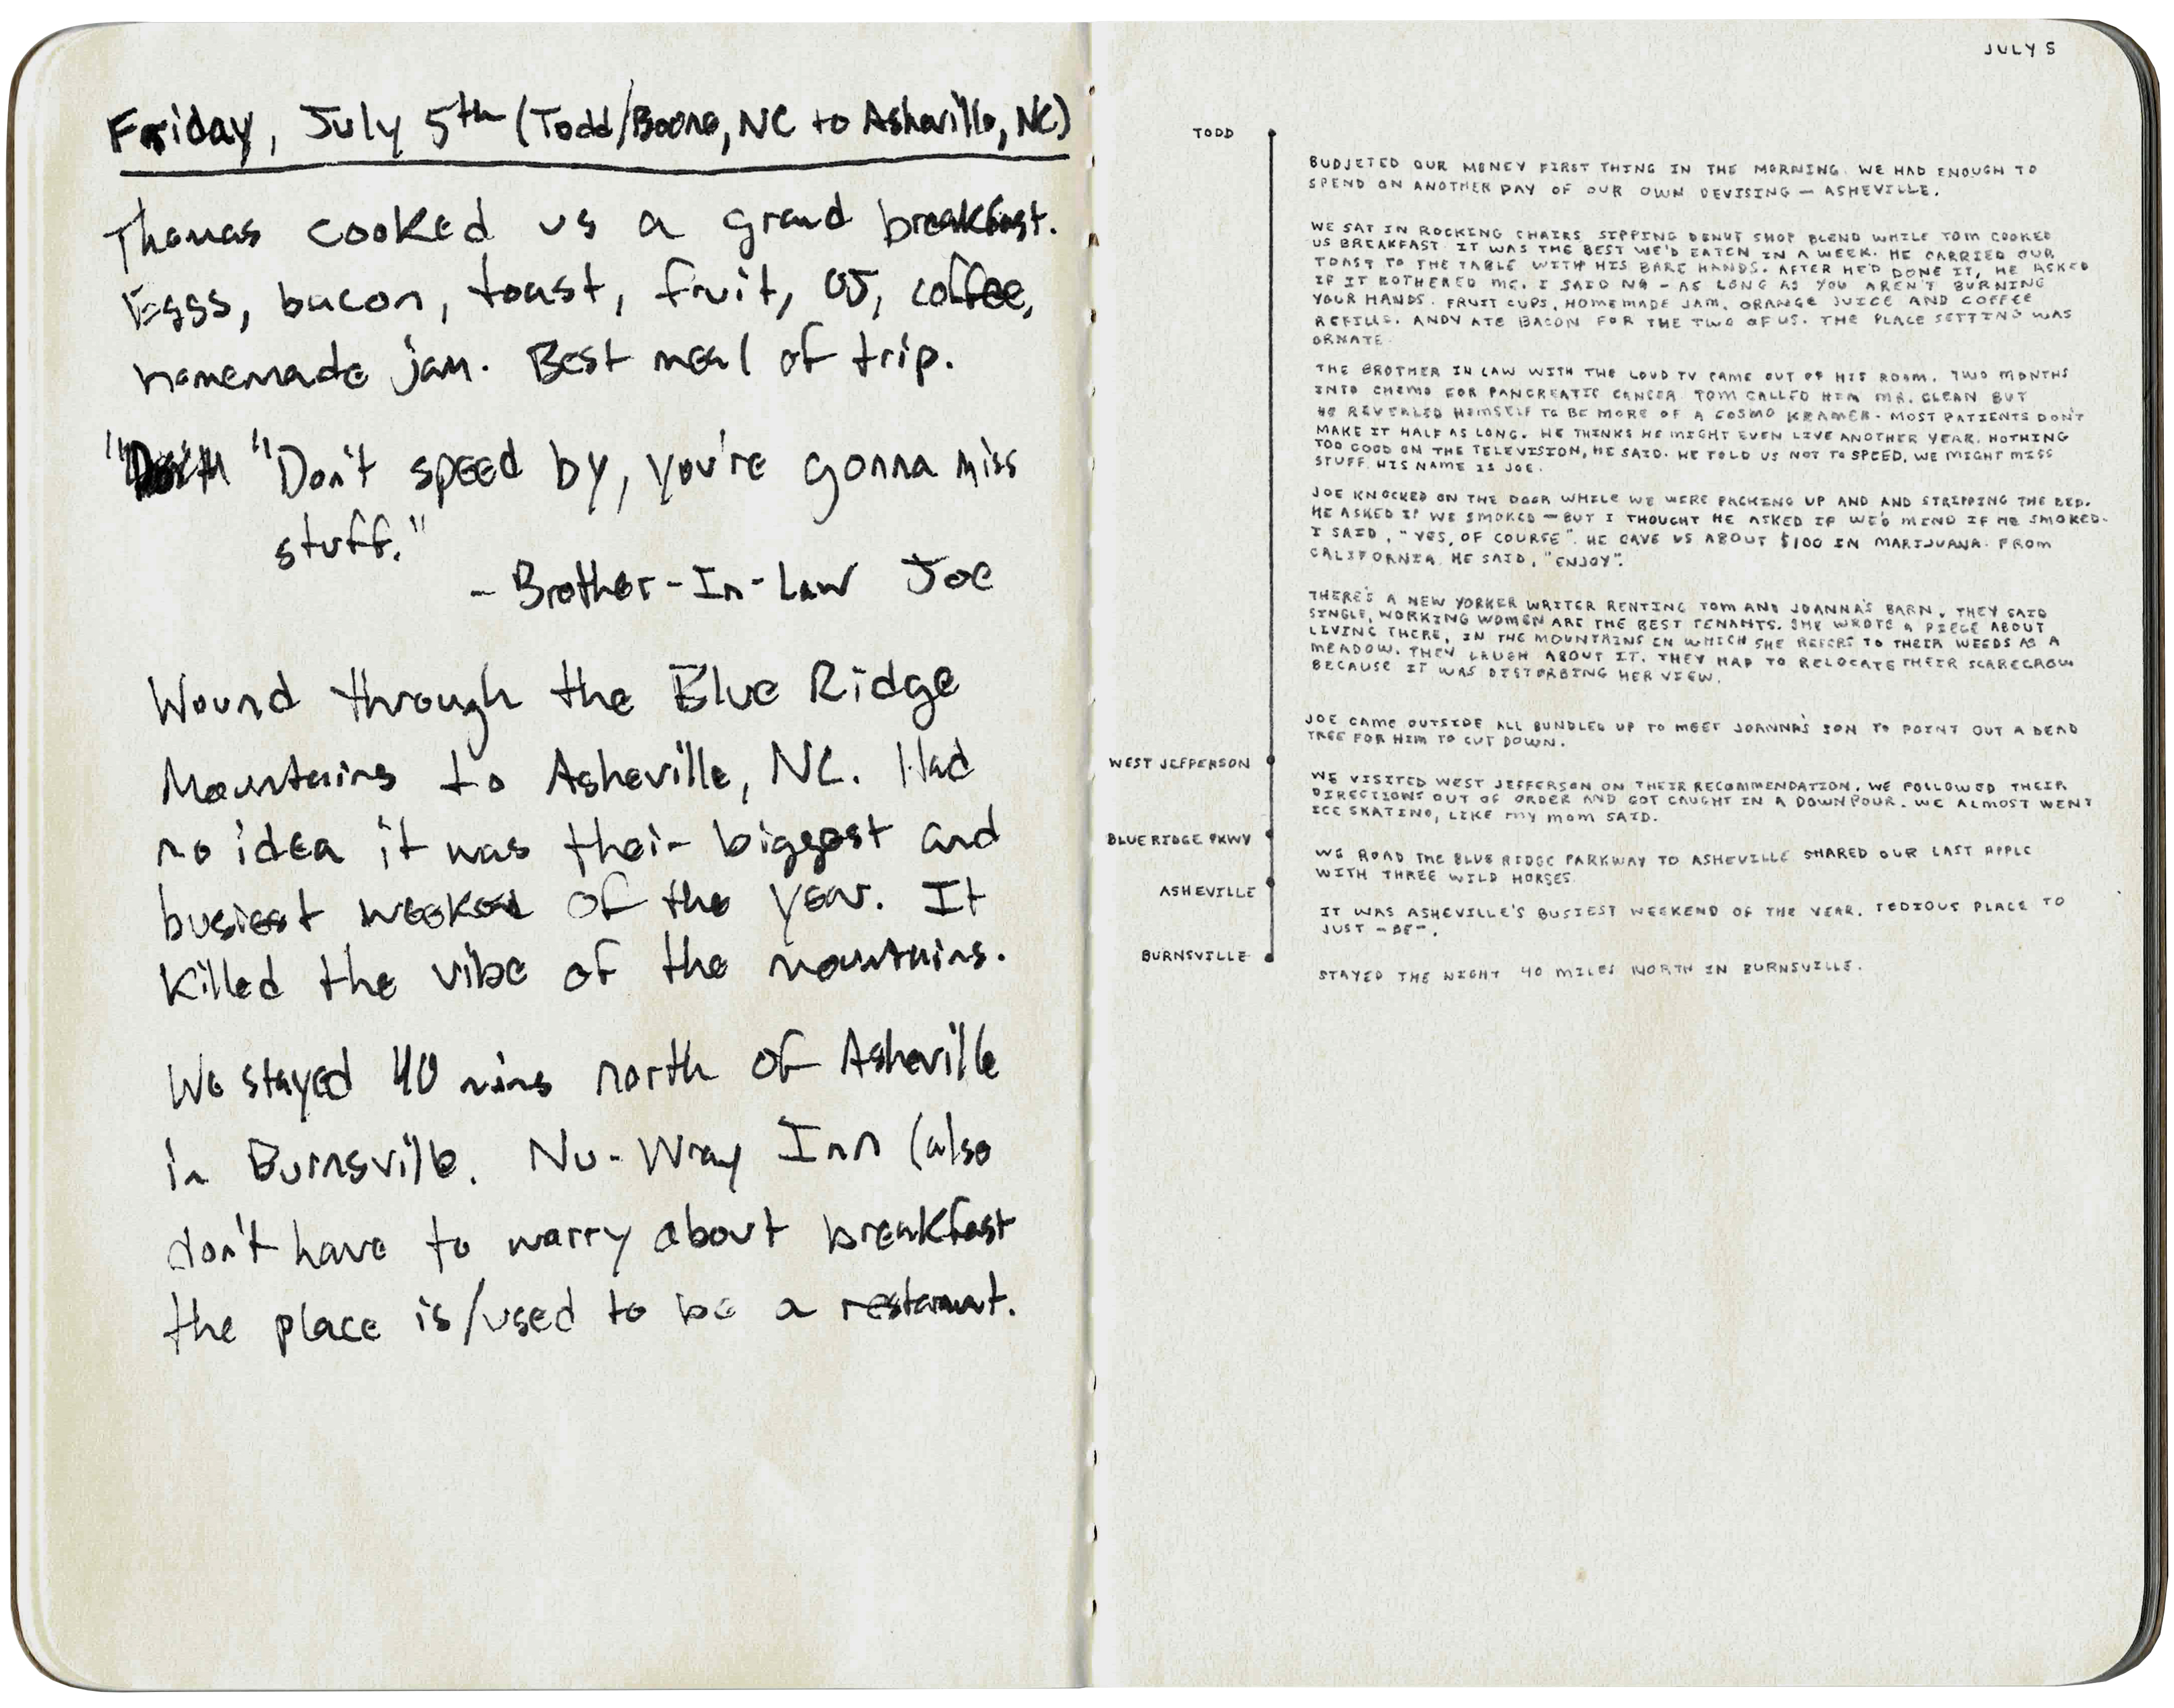 Friday, July 5th (Todd/Boone, NC to Asheville, NC)
Thomas cooked us a grand breakfast.
Eggs, bacon, toast, fruit, OJ, coffee,
homemade jam. Best meal of trip.
"Don't speed by, you're gonna miss
stuff."
- Brother-In-Law Joe
Wound through the Blue Ridge
Mountains to Asheville, NC. Had
no idea it was their biggest and
busiest weekend of the year. It
killed the vibe of the mountains.
We stayed 40 mins north of Asheville
in Burnsville. Nu-Wray Inn (also
don't have to worry about breakfast
the place is/used to be a restaraunt.
JULY 5
TODD
BUDJETED OUR MONEY FIRST THING IN THE MORNING. WE HAD ENOUGH TO
SPEND ON ANOTHER DAY OF OUR OWN DEVISING — ASHEVILLE.
WE SAT IN ROCKING CHAIRS SIPPING DONUT SHOP BLEND WHILE TOM COOKED
US BREAKFAST. IT WAS THE BEST WE'D EATEN IN A WEEK. HE CARRIED OUR
TOAST TO THE TABLE WITH HIS BARE HANDS. AFTER HE'D DONE IT, HE ASKED
IF IT BOTHERED ME. I SAID NO - AS LONG AS YOU AREN'T BURNING
YOUR HANDS. FRUIT CUPS, HOMEMADE JAM, ORANGE JUICE AND COFFEE
REFILLS. ANDY ATE BACON FOR THE TWO OF US. THE PLACE SETTING WAS
ORNATE.
THE BROTHER IN LAW WITH THE LOUD TV CAME OUT OF HIS ROOM. TWO MONTHS
INTO CHEMO FOR PANCREATIC CANCER. TOM CALLED HIM MR. CLEAN BUT
HE REVEALED HIMSELF TO BE MORE OF A COSMO KRAMER. MOST PATIENTS DON'T
MAKE IT HALF AS LONG. HE THINKS HE MIGHT EVEN LIVE ANOTHER YEAR. NOTHING
TOO GOOD ON THE TELEVISION, HE SAID. HE TOLD US NOT TO SPEED, WE MIGHT MISS
STUFF. HIS NAME IS JOE.
JOE KNOCKED ON THE DOOR WHILE WE WERE PACKING UP AND AND STRIPPING THE BED.
HE ASKED IF WE SMOKED — BUT I THOUGHT HE ASKED IF WE'D MIND IF HE SMOKED.
I SAID, "YES, OF COURSE". HE GAVE US ABOUT $100 IN MARIJUANA. FROM
CALIFORNIA. HE SAID, "ENJOY".
THERE'S A NEW YORKER WRITER RENTING TOM AND JOANNA'S BARN. THEY SAID
SINGLE, WORKING WOMEN ARE THE BEST TENANTS. SHE WROTE A PIECE ABOUT
LIVING THERE, IN THE MOUNTAINS IN WHICH SHE REFERS TO THEIR WEEDS AS A
MEADOW. THEY LAUGH ABOUT IT. THEY HAD TO RELOCATE THEIR SCARECROW
BECAUSE IT WAS DISTURBING HER VIEW.
JOE CAME OUTSIDE ALL BUNDLED UP TO MEET JOANNA'S SON TO POINT OUT A DEAD
TREE FOR HIM TO CUT DOWN.
WEST JEFFERSON
WE VISITED WEST JEFFERSON ON THEIR RECOMMENDATION. WE FOLLOWED THEIR
DIRECTIONS OUT OF ORDER AND GOT CAUGHT IN A DOWNPOUR. WE ALMOST WENT
ICE SKATING, LIKE MY MOM SAID.
BLUE RIDGE PKWY
WE ROAD THE BLUE RIDGE PARKWAY TO ASHEVILLE SHARED OUR LAST APPLE
WITH THREE WILD HORSES.
ASHEVILLE
IT WAS ASHEVILLE'S BUSIEST WEEKEND OF THE YEAR. TEDIOUS PLACE TO
JUST -BE-.
BURNSVILLE
STAYED THE NIGHT 40 MILES NORTH IN BURNSVILLE.